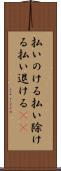 払いのける払い除け
る払い退ける《《